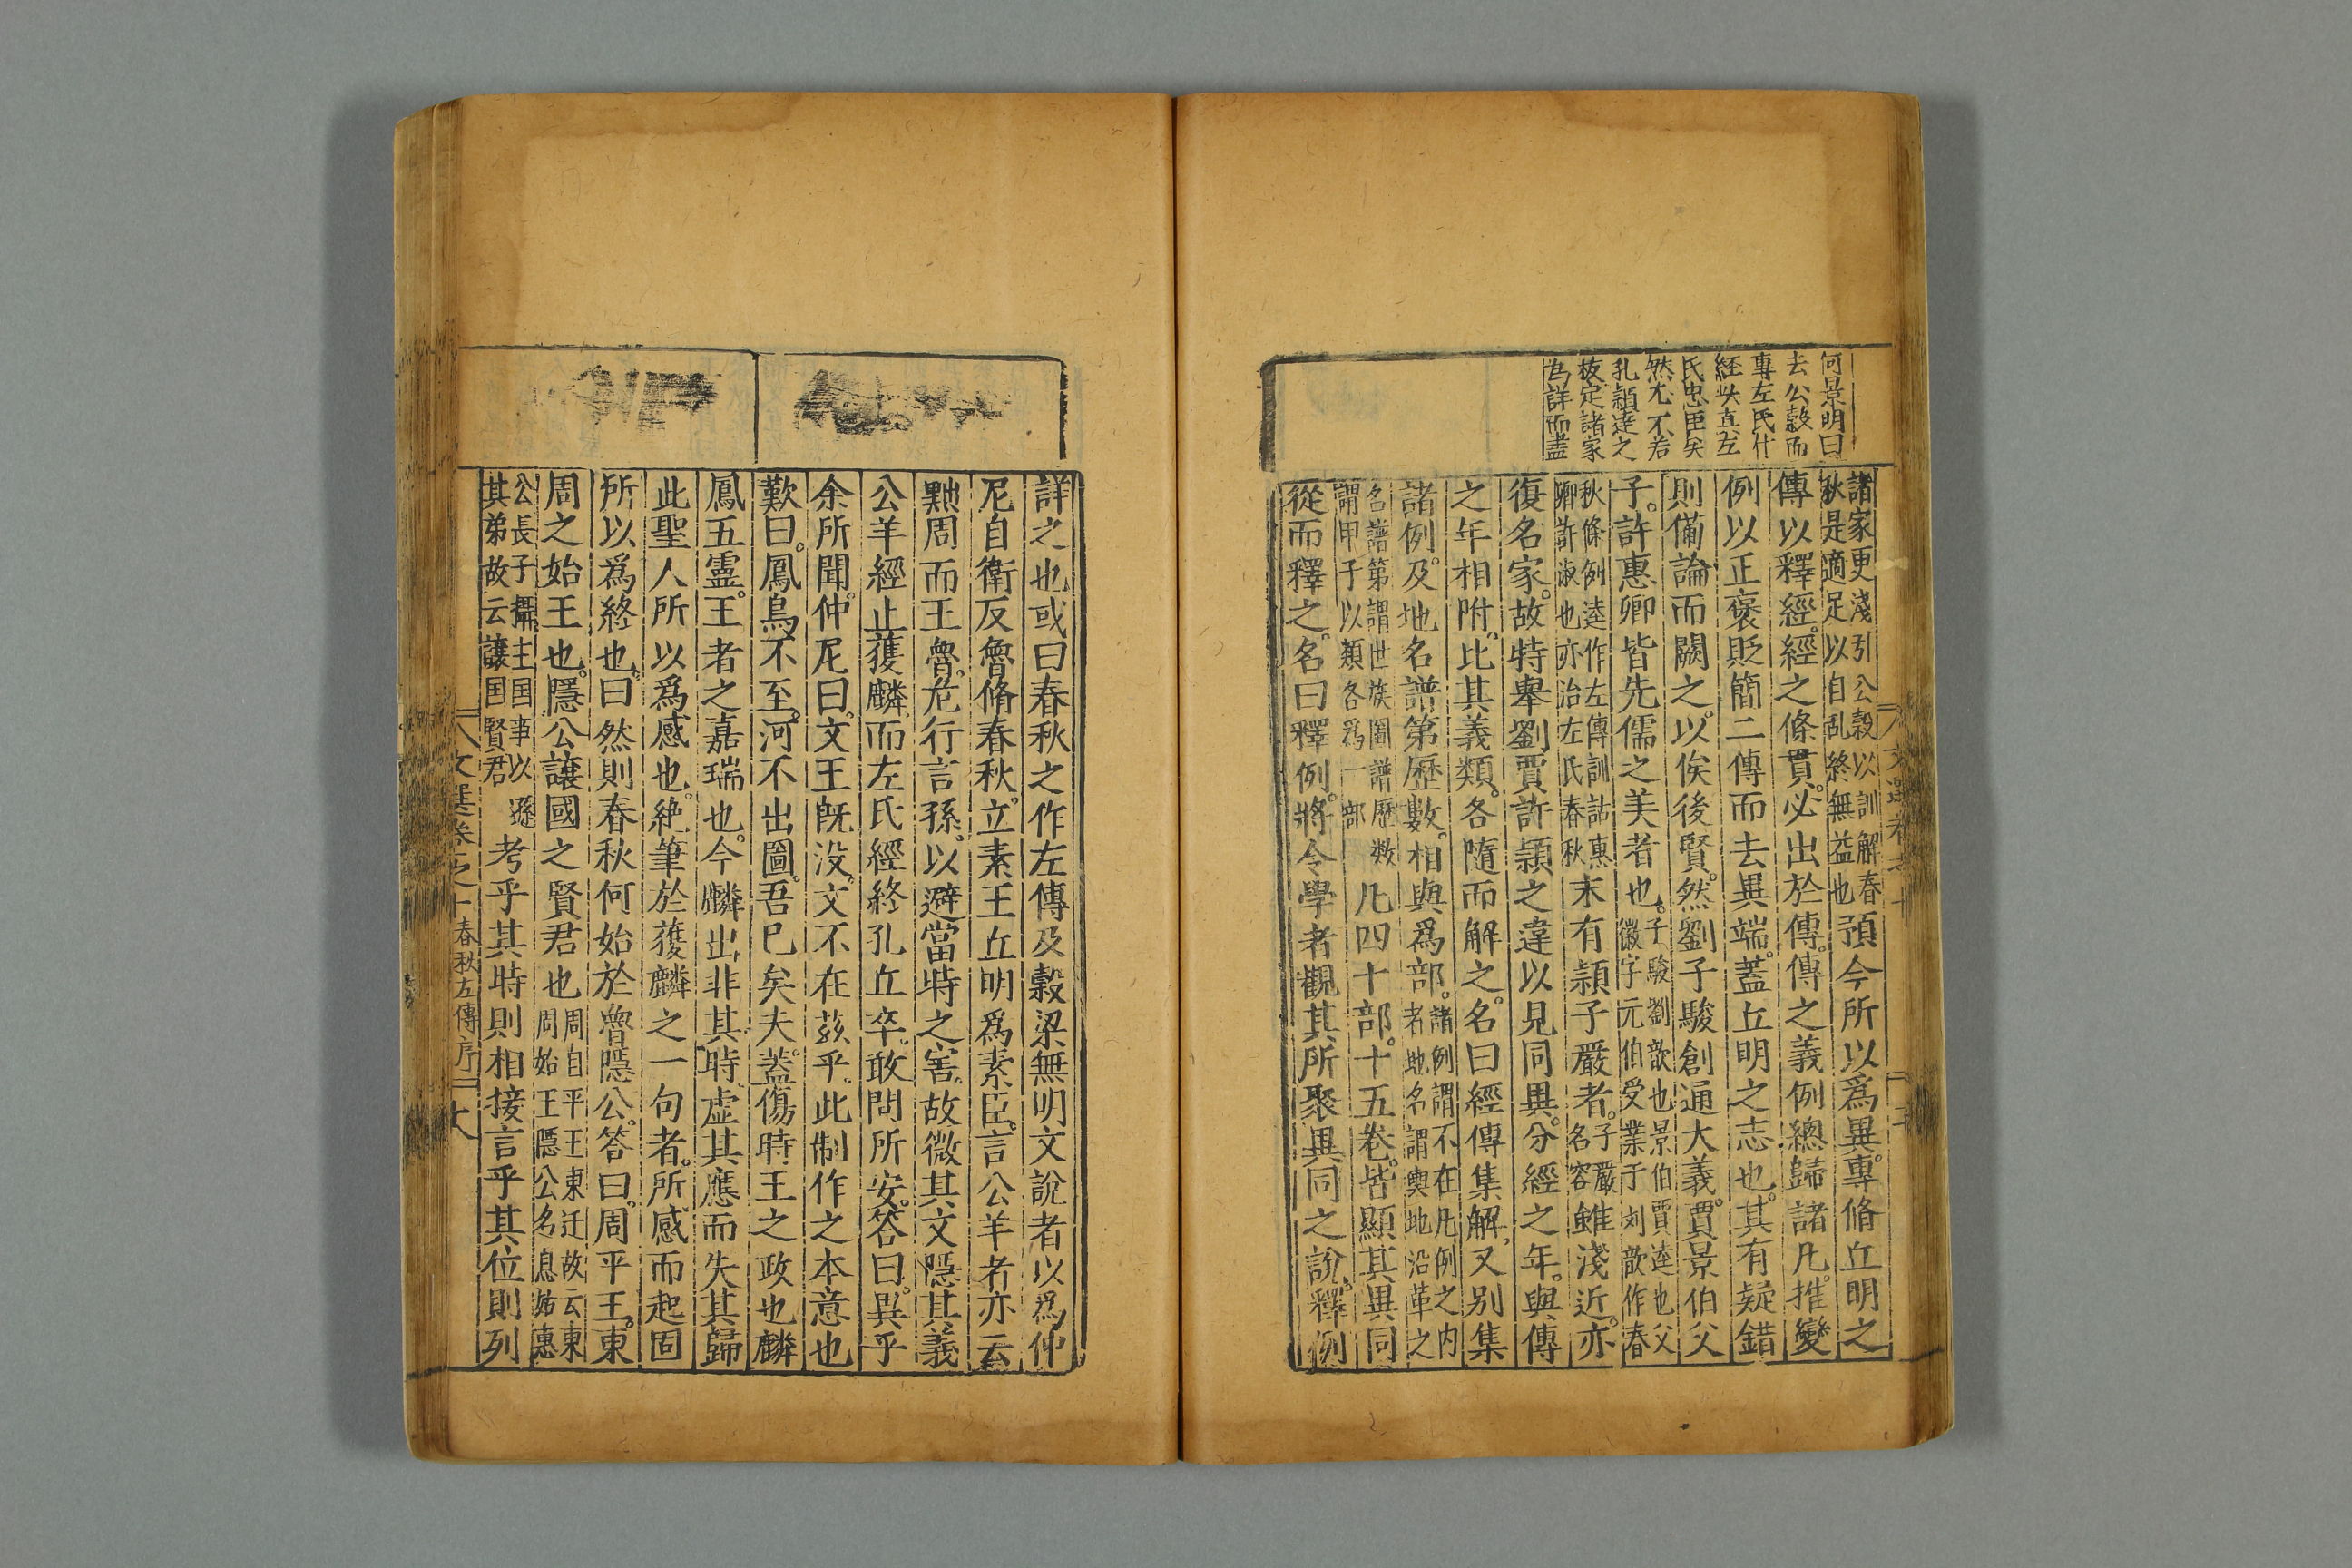 何景明曰
去公穀而
專左氏什
經㕥直左
氏忠臣矣
然尤不若
孔穎達之
校定諸家
為詳而盡
諸家更淺引公穀以訓解春
秋是適足以自乱終無益也
預今所以爲異專脩丘明之
傳以釋經經之條貫必出於傳傳之義例緫歸諸凡推變
例以正褒貶簡二傳而去異端蓋丘明之志也其有疑錯
則備論而闕之以俟後賢然劉子駿創通大義賈景伯父
子許惠卿皆先儒之美者也
子駿劉歆也景伯賈逵也父
徽字元伯受業于刘歆作春
秋條例逵作左傳訓詁惠
卿許淑也亦治左氏春秋
末有頴子嚴者
子嚴
名容
雖淺近亦
復名家故特舉劉賈許頴之違以見同異分經之年與傳
之年相附比其義類各隨而解之名曰經傳集解又别集
諸例及地名譜第歷數相與爲部
諸例謂不在凡例之内
者地名謂輿地沿革之
名譜第謂世族圖譜歷数
謂甲子以類各爲一部
凡四十部十五卷皆顯其異同
從而釋之名曰釋例將令學者觀其所聚異同之說釋例
詳之也或曰春秋之作左傳及穀梁無明文說者以爲仲
尼自衛反魯脩春秋立素王丘明爲素臣言公羊者亦云
黜周而王魯危行言孫以避當時之害故微其文隱其義
公羊經止獲麟而左氏經終孔丘卒敢問所安答曰異乎
余所聞仲尼曰文王旣没文不在茲乎此制作之本意也
歎曰鳳鳥不至河不出圖吾已矣夫蓋傷時王之政也麟
鳳五靈王者之嘉瑞也今麟出非其時虚其應而失其歸
此聖人所以爲感也絶筆於獲麟之一句者所感而起固
所以爲終也曰然則春秋何始於魯隱公答曰周平王東
周之始王也隱公讓國之賢君也
周自平王東迁故云東
周始王隱公名息姑惠
公長子攝主国事以遜
其弟故云讓国賢君
考乎其時則相接言乎其位則列
春秋左傳序